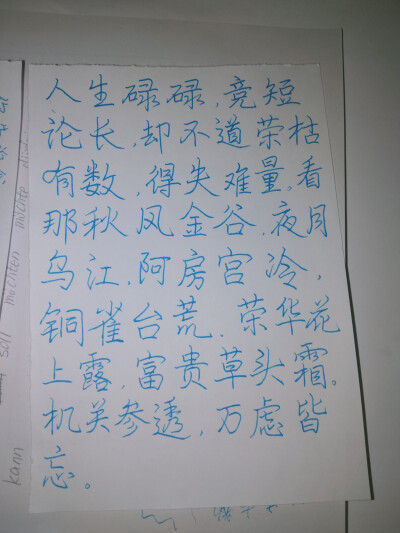 人生碌碌,竞短
论长,却不道荣枯
有数,得失难量。看
那秋风金谷,夜月
乌江,阿房宫冷,
铜雀台荒,荣华花
上露,富贵草头霜。
机关参透,万虑皆
忘。
kann
soll
möchten
möchte